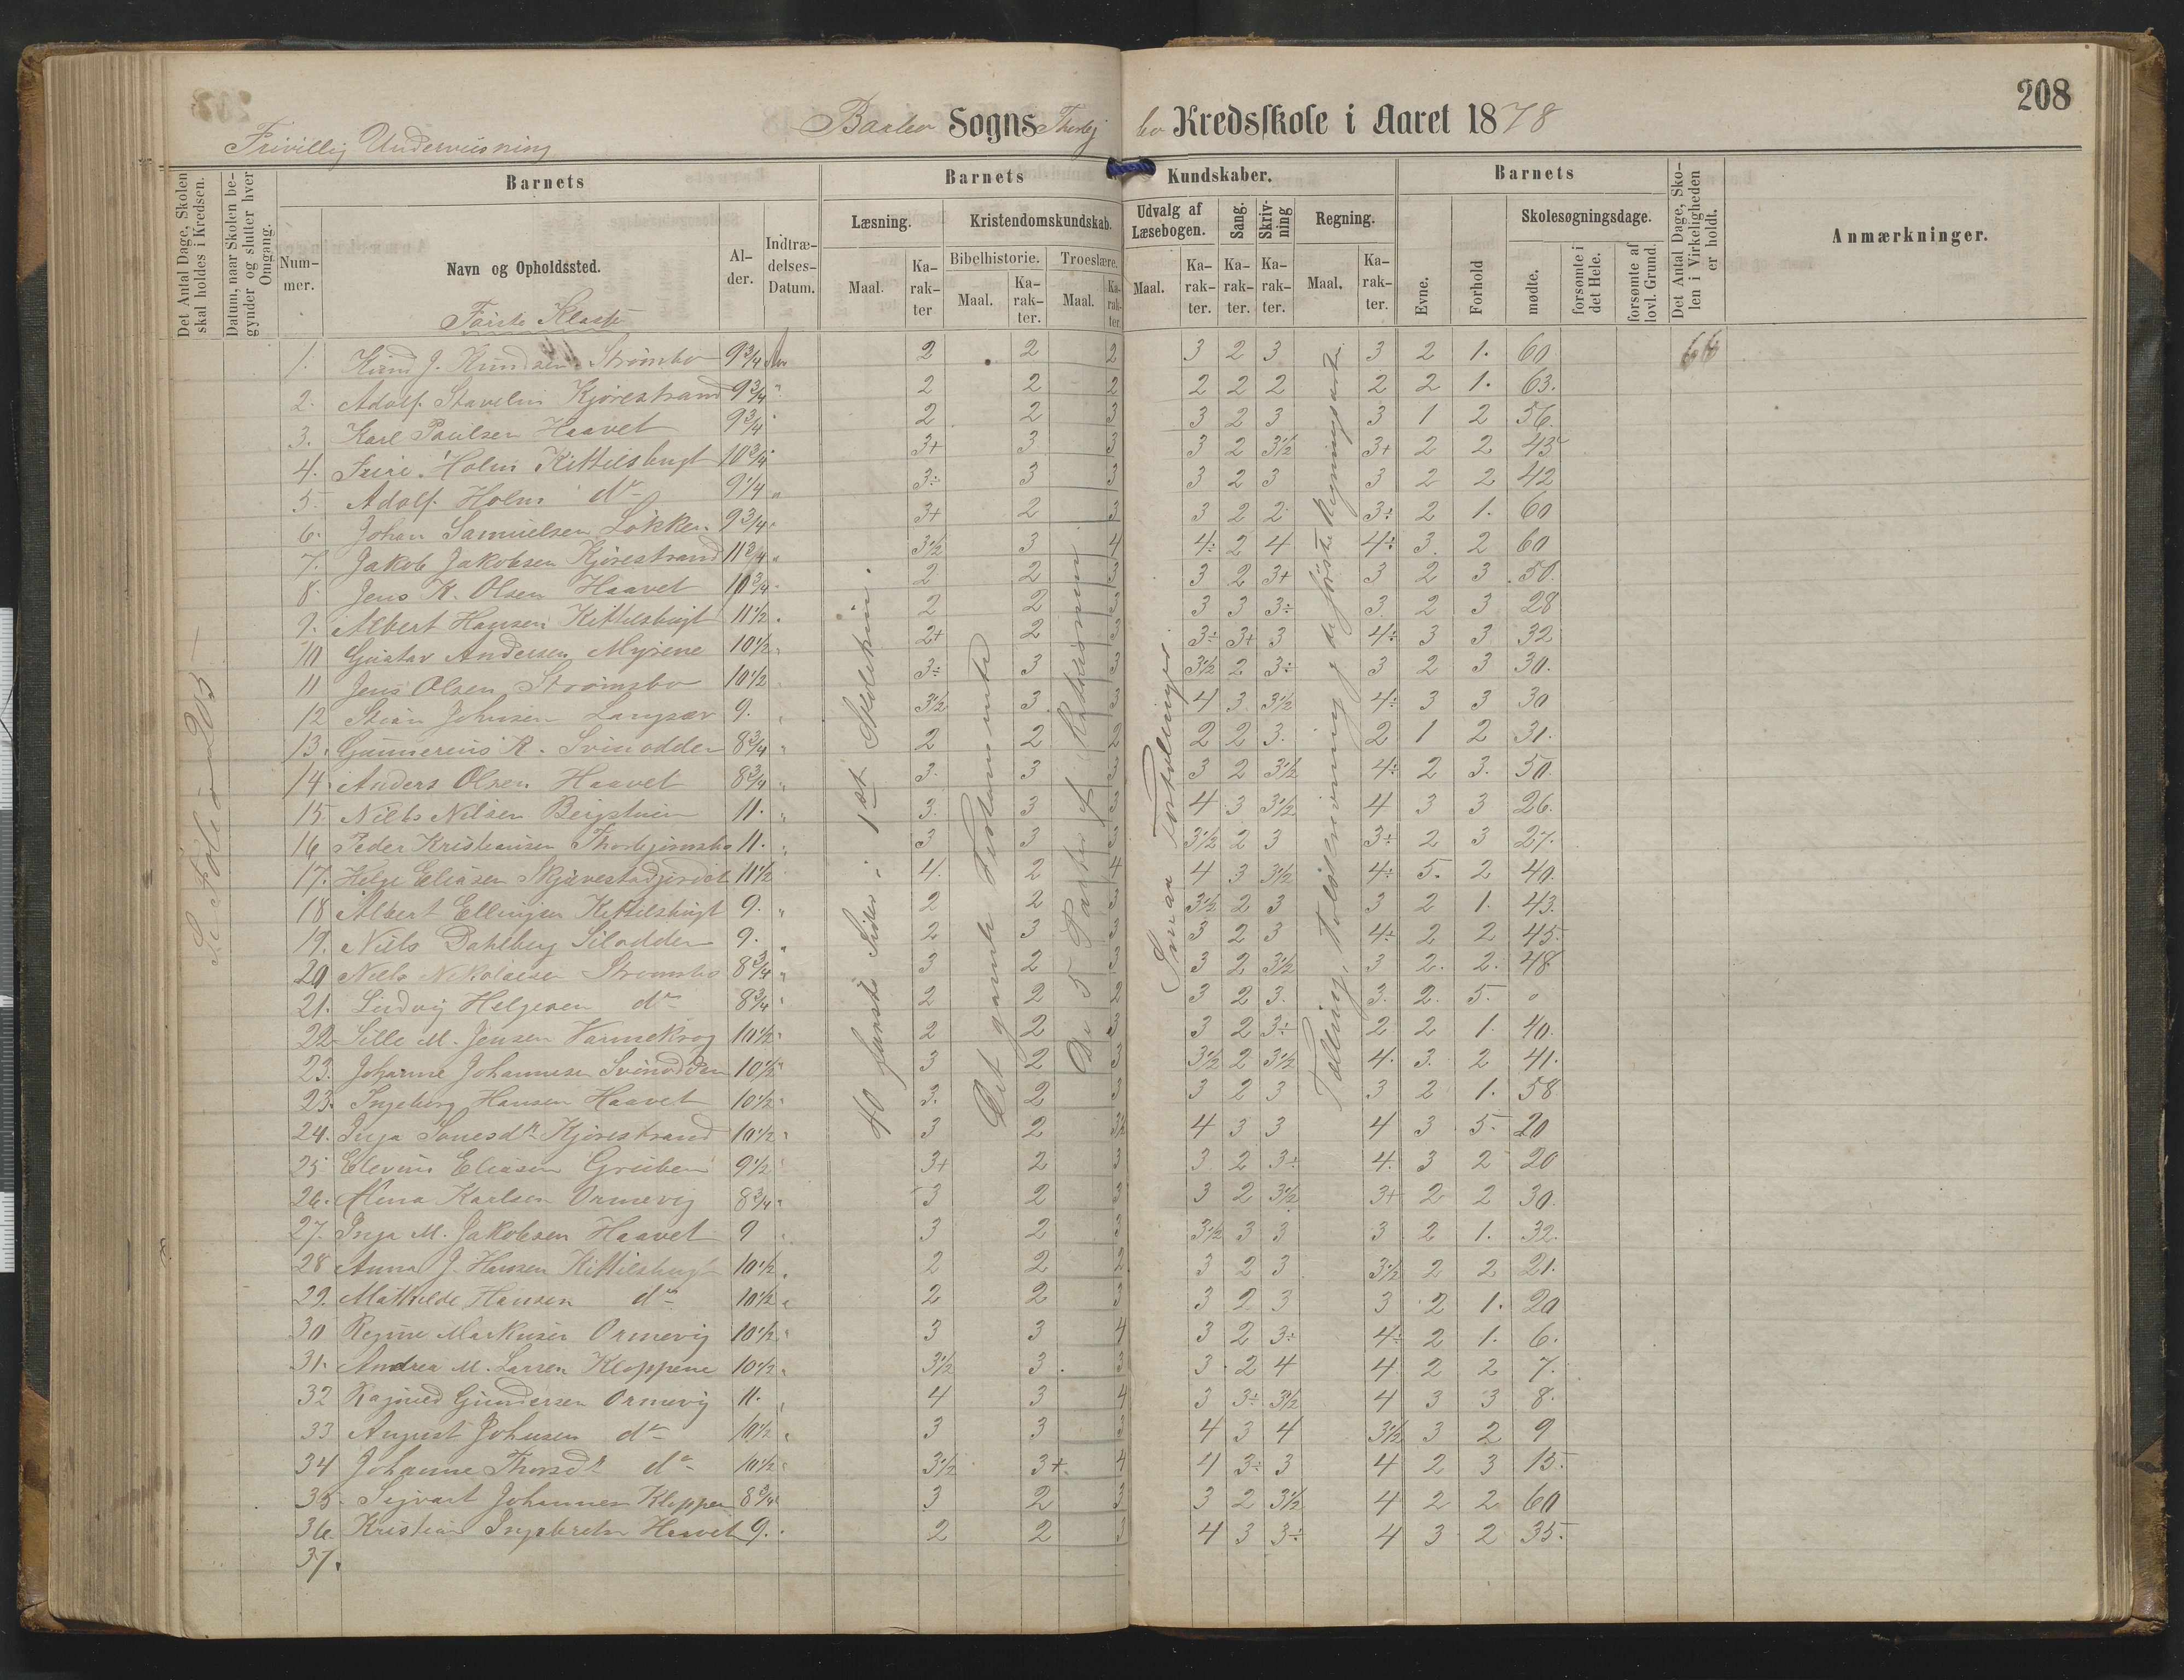 208
Sogns Kredsskole i Aaret 1878
Frivillig Underviisning
Det Antal Dage, Skolen skal holdes i Kredsen.
Datum, naar Skolen begynder og slutter hver Omgang.
Barnets
Nummer.
Navn og Opholdssted.
Alder.
Indtrædelses-Datum.
Barnets Kundskaber.
Læsning.
Maal.
Karakter
Kristendomskundskab.
Bibelhistorie.
Maal.
Karakter.
Troeslære.
Maal.
Karakter.
Udvalg af Læsebogen.
Maal.
Karakter.
Sang.
Karakter.
Skrivning
Karakter.
Regning.
Maal.
Karakter.
Barnets
Evne.
Forhold
Skolesøgningsdage.
mødte.
forsømte i det Hele.
forsømte af lovl. Grund.
Det Antal Dage, Skolen i Virkeligheden er holdt.
Anmærkninger.
Første Klasse
Se Folio 205
40 første Sider i 1st Skoletrin.
Det gamle Testamente
De 5 Parter af
Smaa Fortællinger
1. Knud J. Knudsen Strømsbo 9 3/4 2 2 2 3 2 3 3 2 1. 60
2. Adolf Stavelin Kjørestrand 9 3/4 " 2 2 2 2 2 2 2 2 1. 63.
3. Karl Paulsen Haavet 9 3/4 " 2 2 3 3 2 3 3 1 2 56.
4. Holm Kittelsbugt 10 3/4 " 3+ 3 3 3 2 3 1/2 3+ 2 2 43
5. Adolf Holm do 9 1/4 " 3÷ 3 3 3 2 3 3 2 2 42
6. Johan Samuelsen Løkken 9 3/4 " 3+ 2 3 3 2 2 3÷ 2 1. 60
7. Jakob Jakobsen Kjørestrand 11 3/4 " 3 1/2 3 4 4÷ 2 4 4÷ 3. 2 60
8. Jens K. Olsen Haavet 10 3/4 " 2 2 3 3 2 3+ 3 2 3 50.
9. Albert Hansen Kittelsbugt 11 1/2 " 2 2 3 3 3 3÷ 3. 2 3 28
10 Gustav Andersen Myrene 10 1/2 " 2+ 2 3 3÷ 3+ 3 4÷ 3 3 32
11 Jens Olsen Strømsbo 10 1/2 " 3÷ 3 3 3 1/2 2 3÷ 3 2 3 30.
12 Johnsen Langsæv 9. " 3 1/2 3 3 4 3 3 1/2 4÷ 3 3 30
13. Gunnerius R. Svinodden 8 3/4 " 2 2 2 2 2 3. 2 1 2 31.
14. Anders Olsen Haavet 8 3/4 " 3. 3 3 3 2 3 1/2 4÷ 2 3. 50.
15. Niels Nilsen Bergstuen 11. " 3. 3 3 4 3 3 1/2 4 3 3 26.
16 Peder Kristiansen Thorbjørnsbo 11. " 3 3 3 3 1/2 2 3 3÷ 2 3 27.
17. Helge Eliasen 11 1/2 4. 2 4 4 3 3 1/2 4÷ 5. 2 40.
18 Albert Ellingsen Kittelsbugt 9. " 2 2 3 3 1/2 2 3 3 2 1. 43.
19. Niels Dahlberg Silodden 9. " 2 3 3 3 2 3 4÷ 2 2 45.
20 Niels Nikolaisen Strømsbo 8 3/4 " 3 2 3 3 2 3 1/2 3 2. 2. 48
21. Ludvig Helgesen do 8 3/4 " 2 2 2 3 2 3. 3. 2. 5. "
22 Sille M. Jensen Varmekrog 10 1/2 " 2 2 3 3 2 3÷ 2 2 1 40.
23. Johanne Johannesen Svinodden 10 1/2 " 3 2 3 3 1/2 2 3 1/2 4. 3. 2 41.
23. Ingeborg Hansen Haavet 10 1/2 " 3. 2 3 3 2 3 3 2 1. 58
24. Inga Kjørestrand 10 1/2 " 3 2 3 1/2 4 3 3 4 3 5. 20
25 Eliasen 9 1/2 " 3+ 2 3 3 2 3÷ 4. 3 2 20
26. Karlsen Ormevig 8 3/4 " 3 2 3 3 2 3 1/2 3+ 2 2 30.
27. Inga M. Jakobsen Haavet 9 " 3 2 3 3 1/2 3 3 3 2 1. 32.
28 Anna J. Hansen Kittelsbugt 10 1/2 " 2 2 2 3 2 3 3 1/2 2 2 21.
29. Mathilde Hansen do 10 1/2 " 2 2 3 3 2 3 3 2 1. 20
30 Regine Markusen Ormevig 10 1/2 " 3 3 4 3 2 3÷ 4÷ 2 1. 6.
31. Andrea M. Larsen Kloppene 10 1/2 " 3 1/2 3 3 3 2 4 4 2 2 7.
32 Gundersen Ormevig 11. " 4 3 4 3 3÷ 3 1/2 4 3 3 8.
33 August Johnsen do 10 1/2 " 3 3 3 4 3 4 3 1/2 3 2 9
34 Johanne do 10 1/2 " 3 1/2 3+ 4 4 3÷ 3 4 2 3 15.
35. Sigvart Johannes Kloppen 8 3/4 " 3 2 3 3 2 3 1/2 4 2 2 60
36. Kristian Haavet 9. " 2 2 3 4 3 3÷ 4 3 2 35.
37.